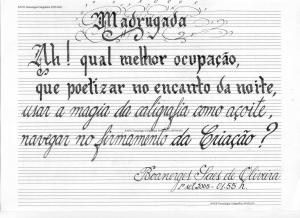 Madrugada
Ah! qual melhor ocupação,
que poetizar no encanto da noite,
usar a magia da caligrafia como açoite,
navegar no firmamento da Criação?
Boanerges Saes de Oliveira